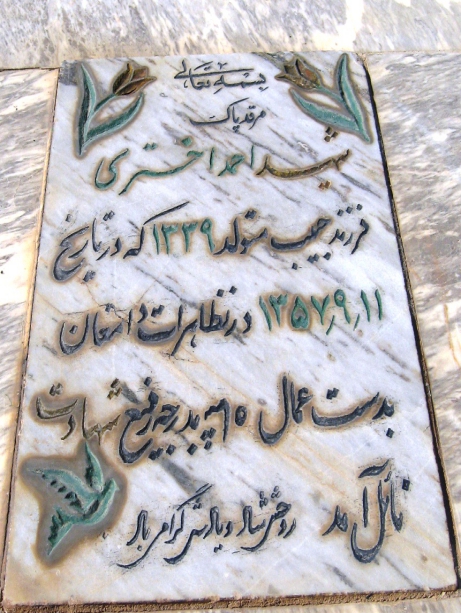 بسمه تعالی
مرقد پاک
شهید احمد اختری
فرزند حبیب متولد ۱۳۳۹ که در تاریخ
۱۳۵۷٫۹٫۱۱ در تظاهرات دامغان
بدست عمال بدرجه رفیع شهادت
نائل آمد روحش شاد و یادش گرامی باد